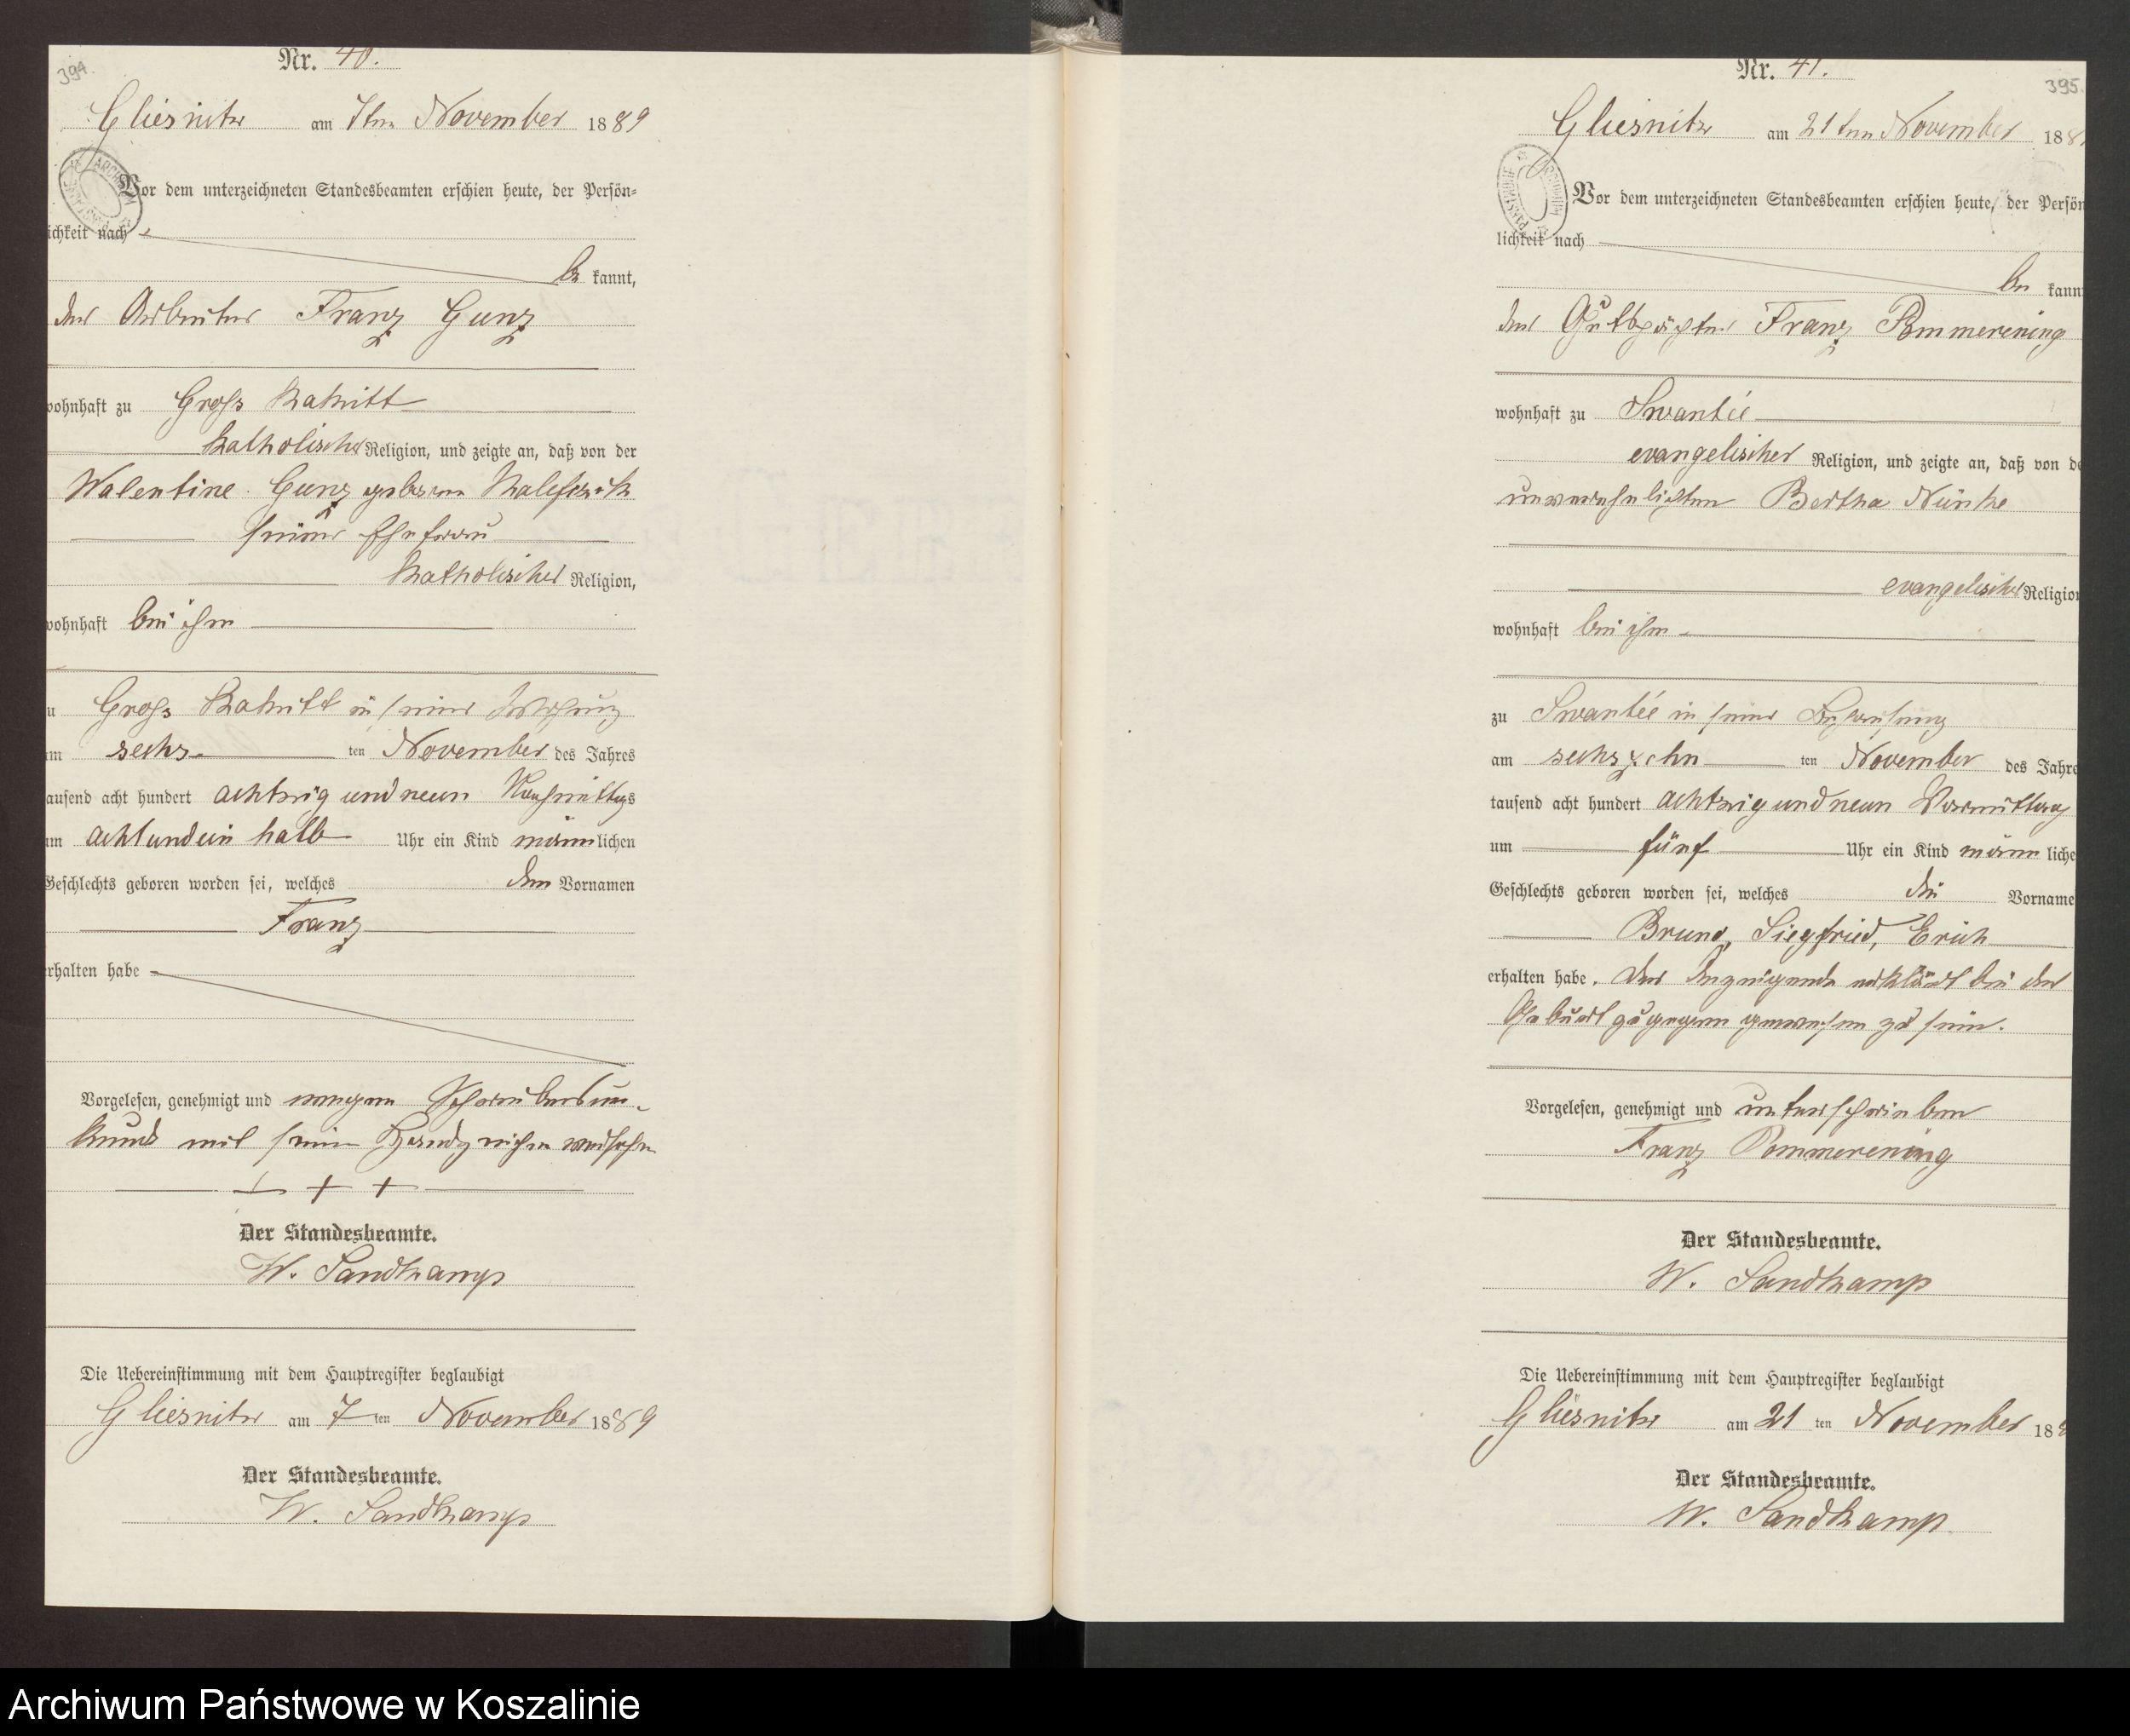 394.
Nr. 40.
Gliesnitz am 7ten November 1889
Vor dem unterzeichneten Standesbeamten erschien heute, der Persön-
ichkeit nach
be kannt,
der Arbeiter Franz Gunz
wohnhaft zu Gross Katnitt
katholischer Religion, und zeigte an, daß von der
Valentine Gunz geborene
seiner Ehefrau
katholischer Religion,
wohnhaft bei ihm
zu Gross Katnitt in seiner Wohnung
am sechs ten November des Jahres
tausend acht hundert achtzig und neun Nachmittags
um acht und ein halb Uhr ein Kind männlichen
Geschlechts geboren worden sei, welches den Vornamen
Franz
erhalten habe
Vorgelesen, genehmigt und wegen Schreibensun-
kunde mit seinem Handzeichen versehen
+ + +
Der Standesbeamte.
W. Sandkamp
Die Uebereinstimmung mit dem Hauptregister beglaubigt
Gliesnitz am 7 ten November 1889
Der Standesbeamte.
W. Sandkamp
395.
Nr. 41.
Gliesnitz am 21ten November 188
Vor dem unterzeichneten Standesbeamten erschien heute, der Persön
lichkeit nach
be kannt
der Gutspächter Franz Pommerening
wohnhaft zu Swantée
evangelischer Religion, und zeigte an, daß von de
unverehelichten Bertha Nünke
evangelischer Religion
wohnhaft bei ihm
zu Swantée in seiner Behausung
am sechszehn ten November des Jahre
tausend acht hundert achtzig und neun Vormittag
um fünf Uhr ein Kind männ liche
Geschlechts geboren worden sei, welches die Vorname
Bruno, Siegfried, Erich
erhalten habe. Der Anzeigende erklärt bei der
Geburt zugegen gewesen zu sein.
Vorgelesen, genehmigt und unterschrieben
Franz Pommerening
Der Standesbeamte.
W. Sandkamp
Die Uebereinstimmung mit dem Hauptregister beglaubigt
Gliesnitz am 21 ten November 188
Der Standesbeamte.
W. Sandkamp
Archiwum Państwowe w Koszalinie